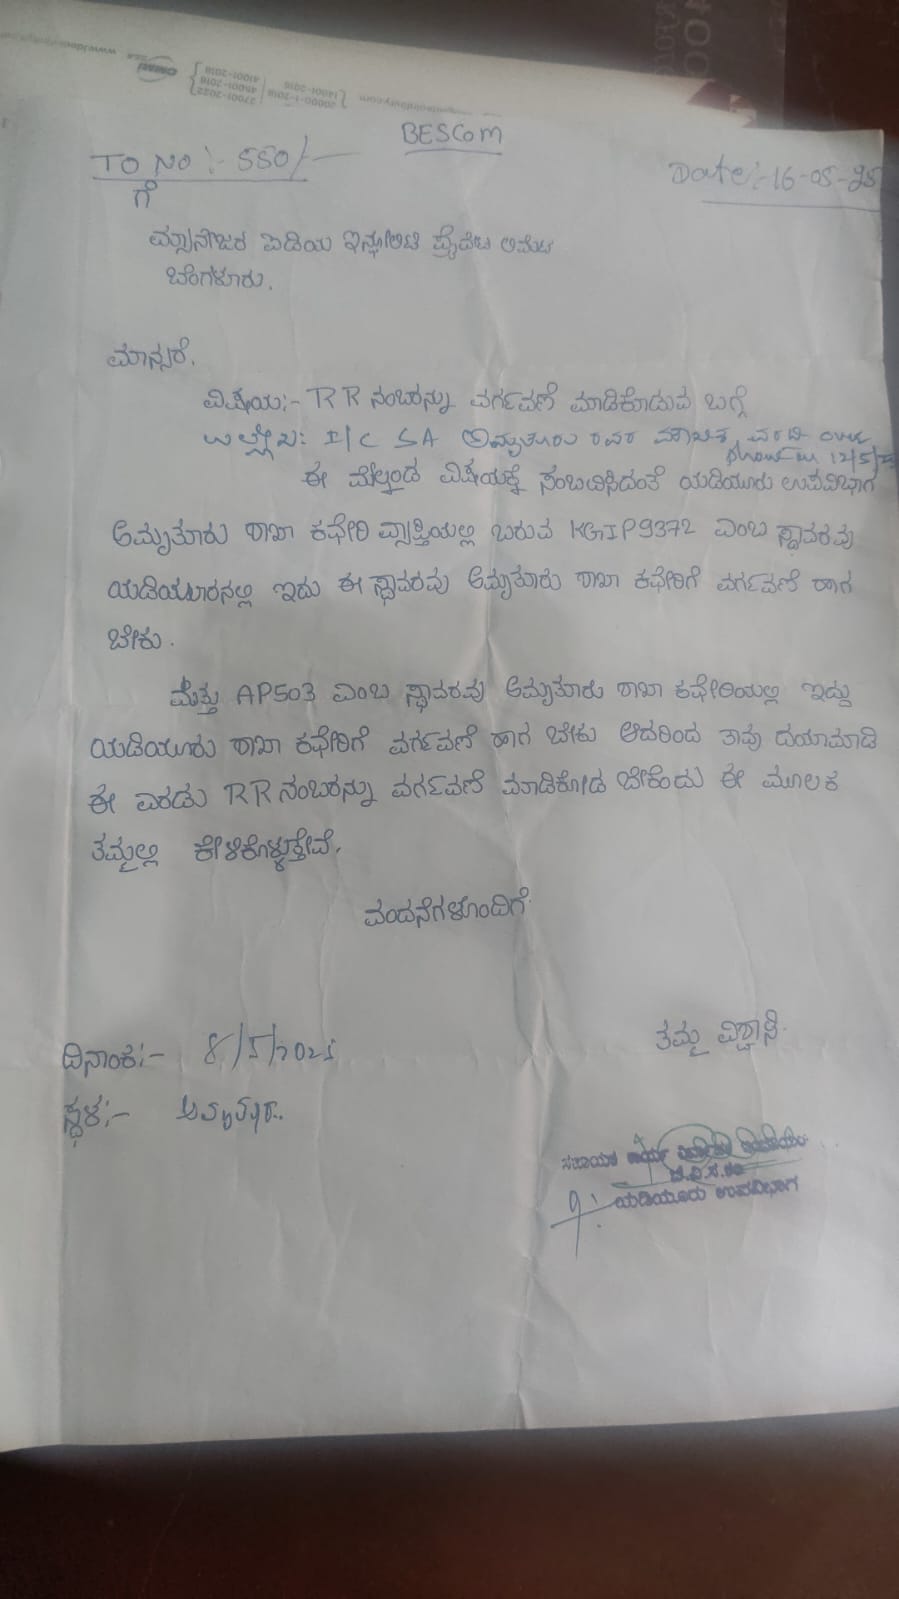 BESCOM
TO NO :- 550/-
Date:-16-05-25
ಗೆ
ಮ್ಯಾನೇಜರ ಐಡಿಯ ಇನ್ಫಿನಿಟಿ ಪ್ರೈವೇಟ ಲಿಮಿಟ
ಬೆಂಗಳೂರು.
ಮಾನ್ಯರೆ.
ವಿಷಯ:- RR ನಂಬರನ್ನು ವರ್ಗವಣೆ ಮಾಡಿಕೊಡುವ ಬಗ್ಗೆ
ಉಲ್ಲೇಖ: I/C SA ಅಮೃತೂರು ರವರ ವರದಿ
12/5/25
ಈ ಮೇಲ್ಕಂಡ ವಿಷಯಕ್ಕೆ ಸಂಬಂಧಿಸಿದಂತೆ ಯಡಿಯೂರು ಉಪವಿಭಾಗ
ಅಮೃತೂರು ಶಾಖಾ ಕಛೇರಿ ವ್ಯಾಪ್ತಿಯಲ್ಲಿ ಬರುವ KGIP9372 ಎಂಬ ಸ್ಥಾವರವು
ಯಡಿಯೂರಿನಲ್ಲಿ ಇದು ಈ ಸ್ಥಾವರವು ಅಮೃತೂರು ಶಾಖಾ ಕಛೇರಿಗೆ ವರ್ಗವಣೆ ಆಗ
ಬೇಕು.
ಮತ್ತು AP503 ಎಂಬ ಸ್ಥಾವರವು ಅಮೃತೂರು ಶಾಖಾ ಕಛೇರಿಯಲ್ಲಿ ಇದ್ದು
ಯಡಿಯೂರು ಶಾಖಾ ಕಛೇರಿಗೆ ವರ್ಗವಣೆ ಆಗ ಬೇಕು ಆದರಿಂದ ತಾವು ದಯಾಮಾಡಿ
ಈ ಎರಡು RR ನಂಬರನ್ನು ವರ್ಗವಣೆ ಮಾಡಿಕೊಡ ಬೇಕೆಂದು ಈ ಮೂಲಕ
ತಮ್ಮಲ್ಲಿ ಕೇಳಿಕೊಳ್ಳುತ್ತೇವೆ.
ವಂದನೆಗಳೊಂದಿಗೆ
ತಮ್ಮ ವಿಶ್ವಾಸಿ.
ದಿನಾಂಕ:- 8/5/2025
ಸ್ಥಳ:- ಅಮೃತೂರು.
ಸಹಾಯಕ ಕಾರ್ಯ
ಬೆ.ವಿ.ಸ.ಕಂ
ಯಡಿಯೂರು ಉಪವಿಭಾಗ